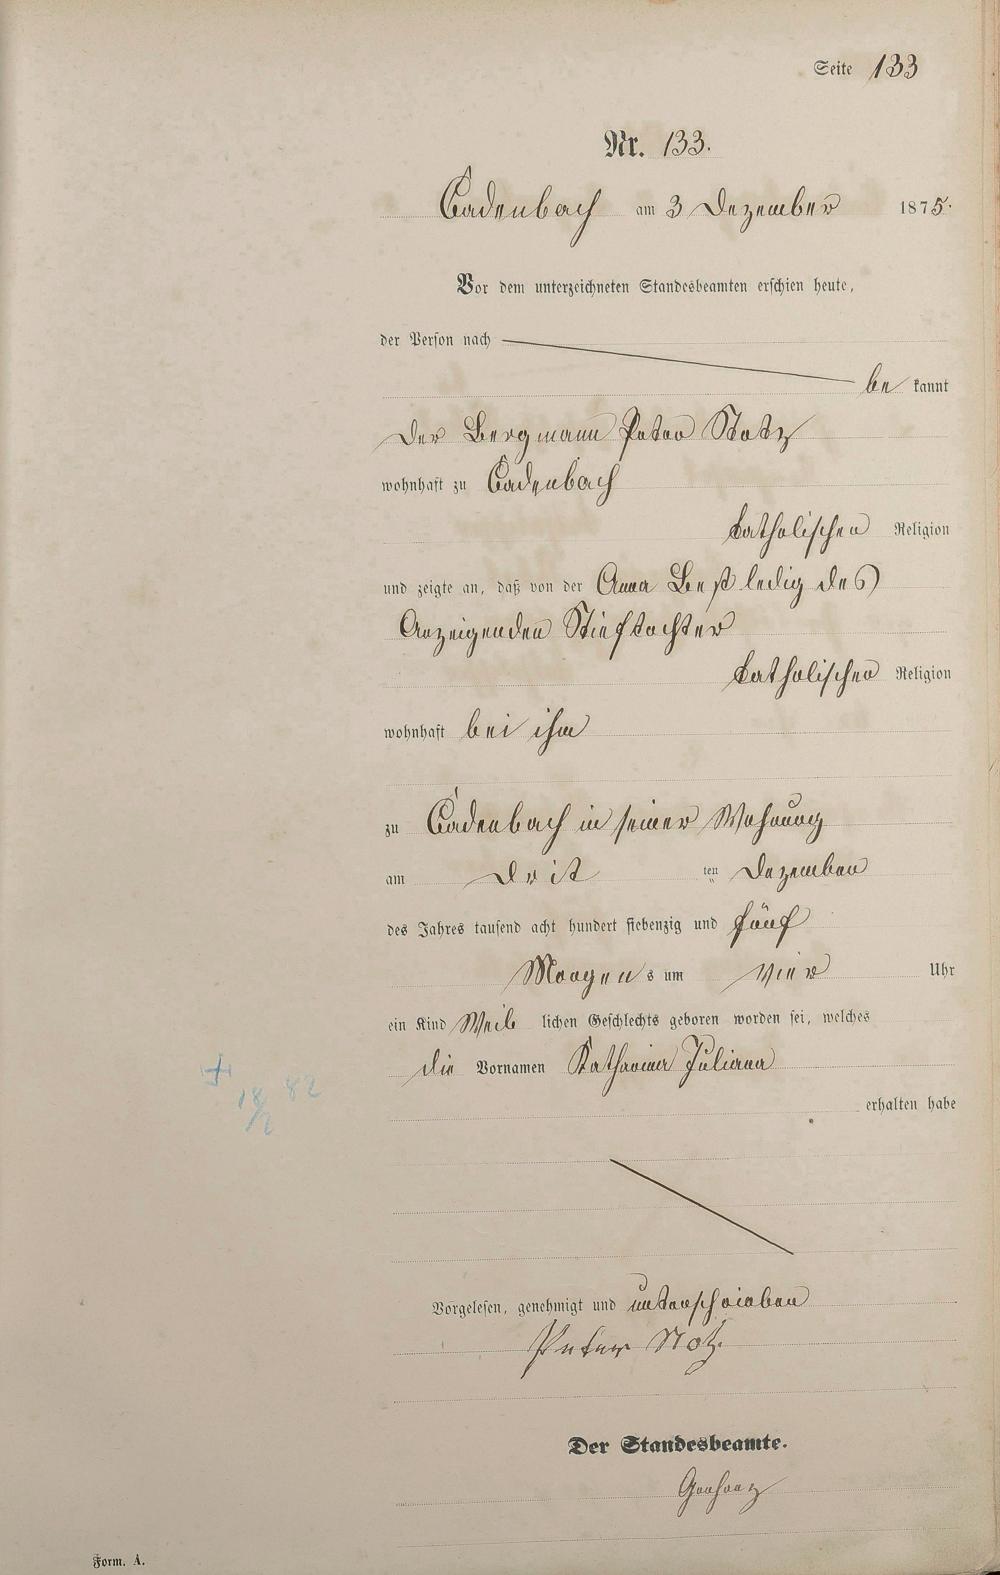 Seite 133
Nr. 133.
Cadenbach am 3 Dezember 1875.
Vor dem unterzeichneten Standesbeamten erschien heute,
der Person nach
be kannt
der Bergmann Peter Stotz
wohnhaft zu Cadenbach
katholischen Religion
und zeigte an, daß von der Anna Best ledig des
Anzeigenden Stieftochter
katholischer Religion
wohnhaft bei ihm
zu Cadenbach in seiner Wohnung
am drit ten Dezember
des Jahres tausend acht hundert siebenzig und fünf
Morgen s um vier Uhr
ein Kind Weib lichen Geschlechts geboren worden sei, welches
die Vornamen Katharina Juliana
erhalten habe
+
18/2 82
Vorgelesen, genehmigt und unterschrieben
Peter Stotz.
Der Standesbeamte.
Form. A.